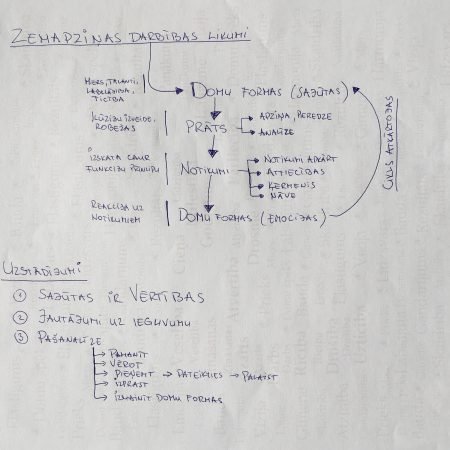 ZEMAPZIŅAS DARBĪBAS LIKUMI
MĒRS, TALANTI,
LABKLĀJĪBA,
TICĪBA
DOMU FORMAS (SAJŪTAS)
ILŪZIJU IZVEIDE,
ROBEŽAS
PRĀTS
APZIŅA, PIEREDZE
ANALĪZE
IZSKATA CAUR
FUNKCIJU PRINCIPU
NOTIKUMI
NOTIKUMI APKĀRT
ATTIECĪBAS
ĶERMENIS
NĀVE
REAKCIJA UZ
NOTIKUMIEM
DOMU FORMAS (EMOCIJAS)
CIKLS ATKĀRTOJAS
UZSTĀDĪJUMI
① SAJŪTAS IR VĒRTĪBAS
② JAUTĀJUMI UZ IEGUVUMU
③ PAŠANALĪZE
PAMANĪT
VĒROT
PIEŅEMT → PATEIKTIES → PALAIST
IZPRAST
IZMAINĪT DOMU FORMAS